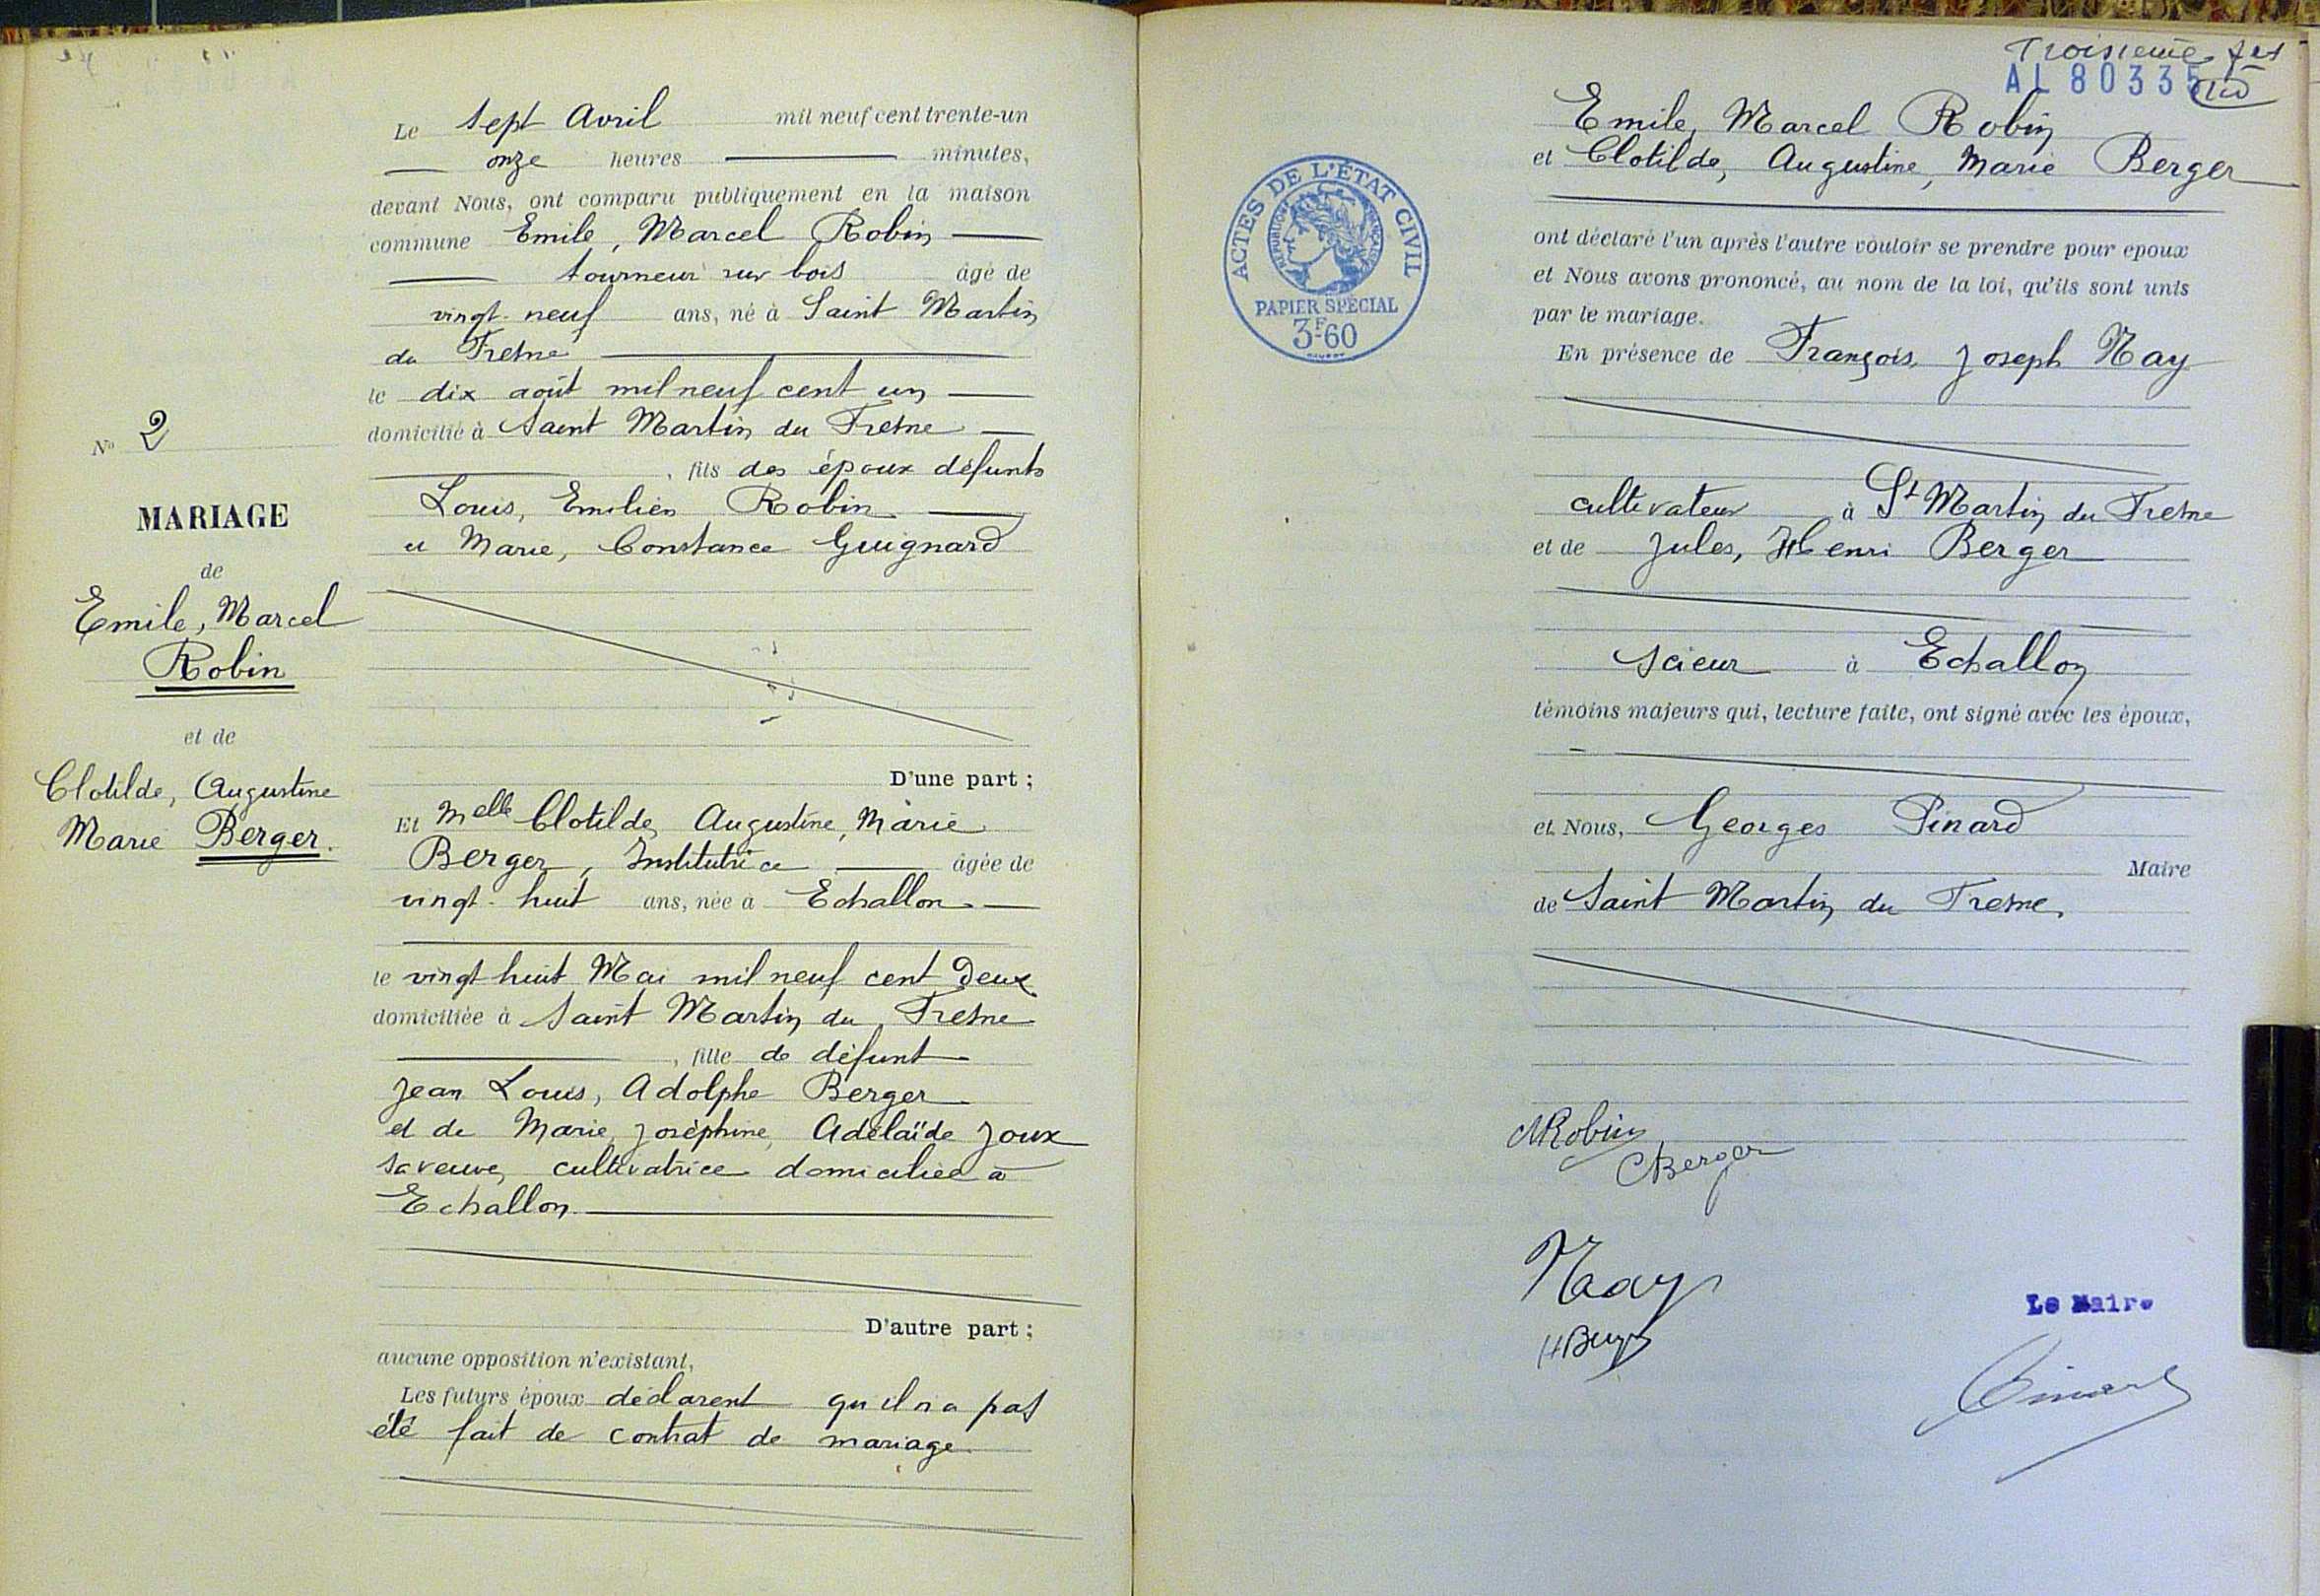 N° 2
MARIAGE
de
Emile, Marcel
Robin
et de
Clotilde, Augustine
Marie Berger.
Le sept Avril mil neuf cent trente-un
onze heures minutes,
devant Nous, ont comparu publiquement en la maison
commune Emile, Marcel Robin
tourneur sur bois âgé de
vingt-neuf ans, né à Saint Martin
du Fresne
le dix août mil neuf cent un
domicilié à Saint Martin du Fresne
, fils des époux défunts
Louis, Emilien Robin
et Marie, Constance Guignard
D'une part ;
Et Melle Clotilde, Augustine, Marie
Berger, Institutrice âgée de
vingt-huit ans, née à Echallon
le vingt huit Mai mil neuf cent Deux
domiciliée à Saint Martin du Fresne
, fille de défunt
Jean Louis, Adolphe Berger
et de Marie, Joséphine, Adélaïde Joux
sa veuve, cultivatrice domiciliée à
Echallon
D'autre part ;
aucune opposition n'existant,
Les futurs époux déclarent qu'il n'a pas
été fait de contrat de mariage
Troisième
AL 80335
Emile, Marcel Robin
et Clotilde, Augustine, Marie Berger
ACTES DE L'ÉTAT CIVIL
RÉPUBLIQUE FRANÇAISE
PAPIER SPÉCIAL
3F-60
ont déclaré l'un après l'autre vouloir se prendre pour époux
et Nous avons prononcé, au nom de la loi, qu'ils sont unis
par le mariage.
En présence de François, Joseph Nay
cultivateur à St Martin du Fresne
et de Jules, Henri Berger
scieur à Echallon
témoins majeurs qui, lecture faite, ont signé avec les époux,
et Nous, Georges Pinard
Maire
de Saint Martin du Fresne,
MRobin
CBerger
Nay
Le Maire
Pinard